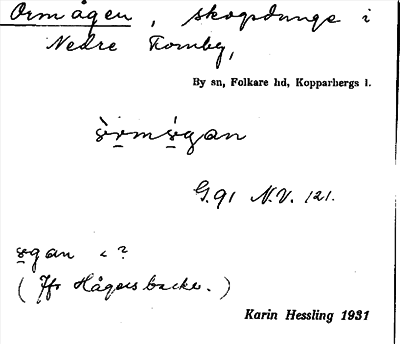 Ormågen, skogsdunge i
Nedre Fornby,
By sn, Folkare hd, Kopparbergs l.
G. 91 N.V. 121.
gan < ?
(Jfr Hågersbacke.)
Karin Hessling 1931